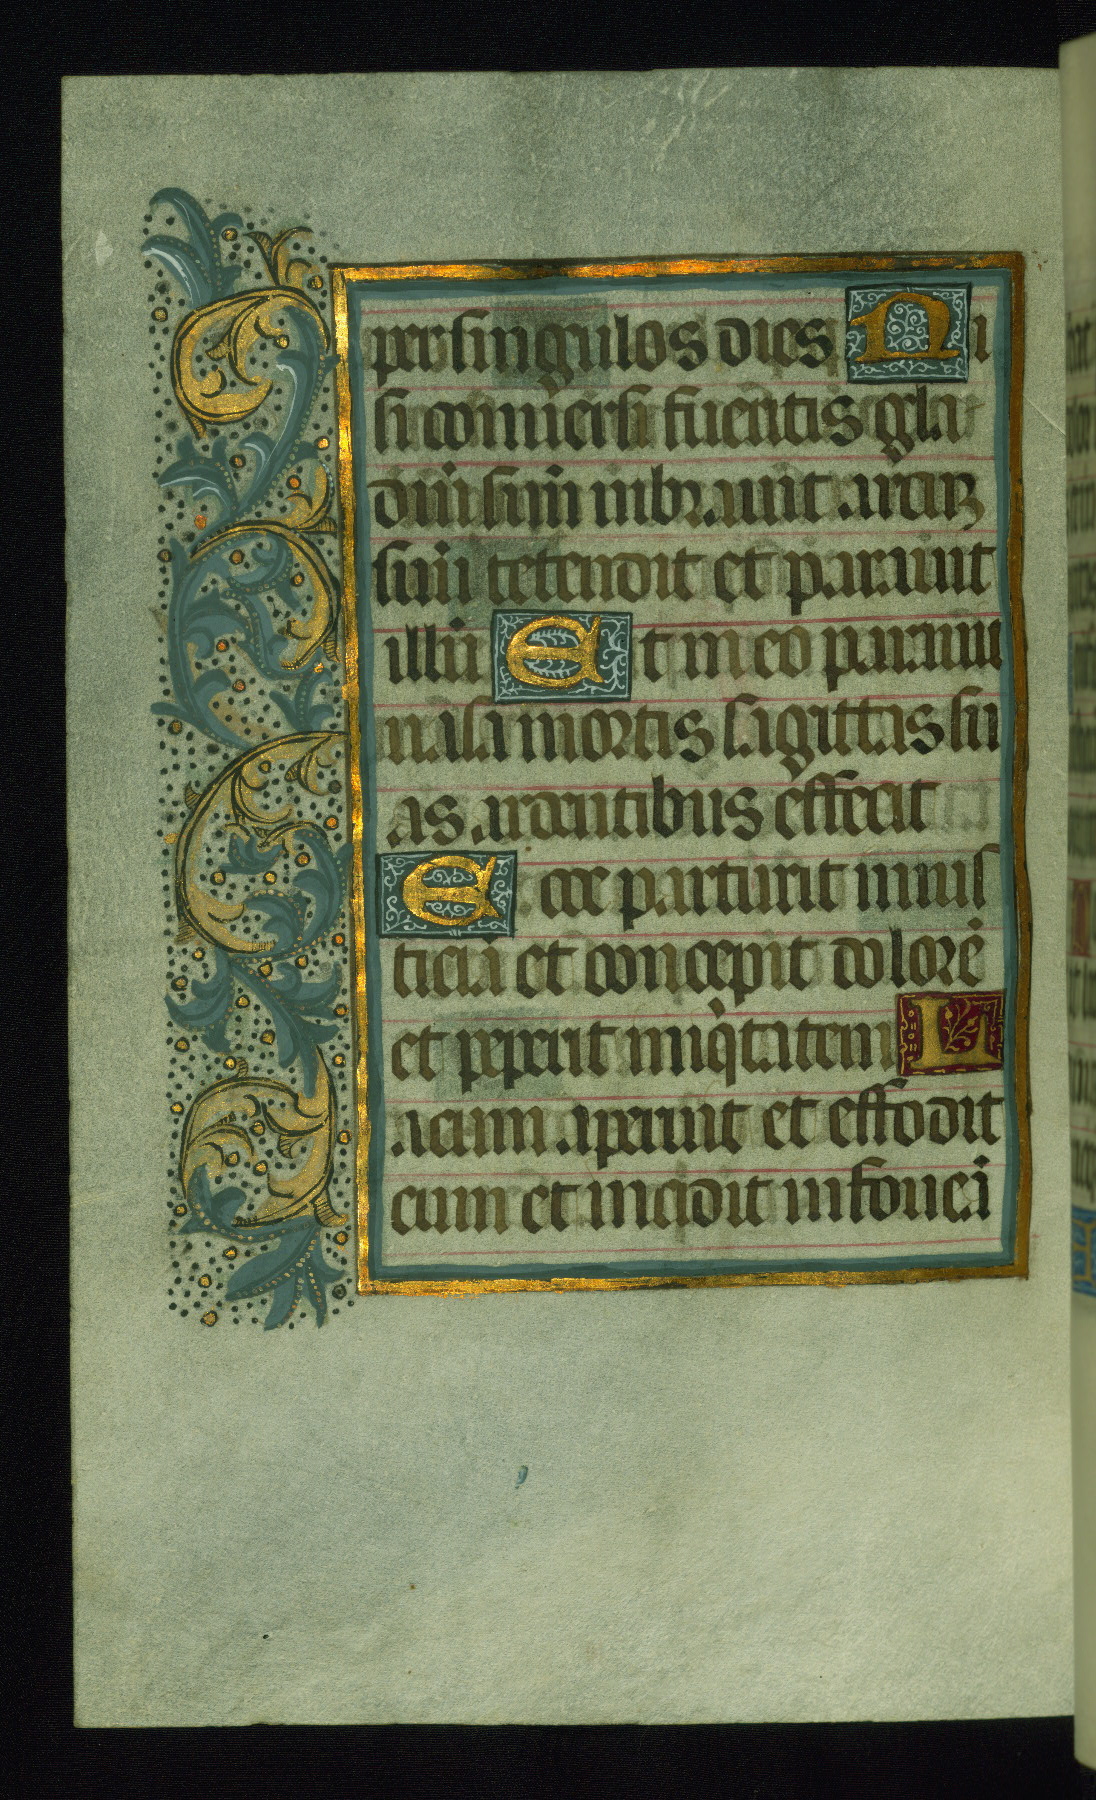 per singulos dies Ni
si conuersi fueritis gla
diū suū uibrauit arcū
suū tetendit et parauit
illū Et in eo parauit
uasa mortis sagittas su
as ardentibus effecit
Ecce parturit inius
ticiā et concepit dolorē
et peperit iniq̄tatem L
acum aperuit et effodit
eum et incidit in foueā